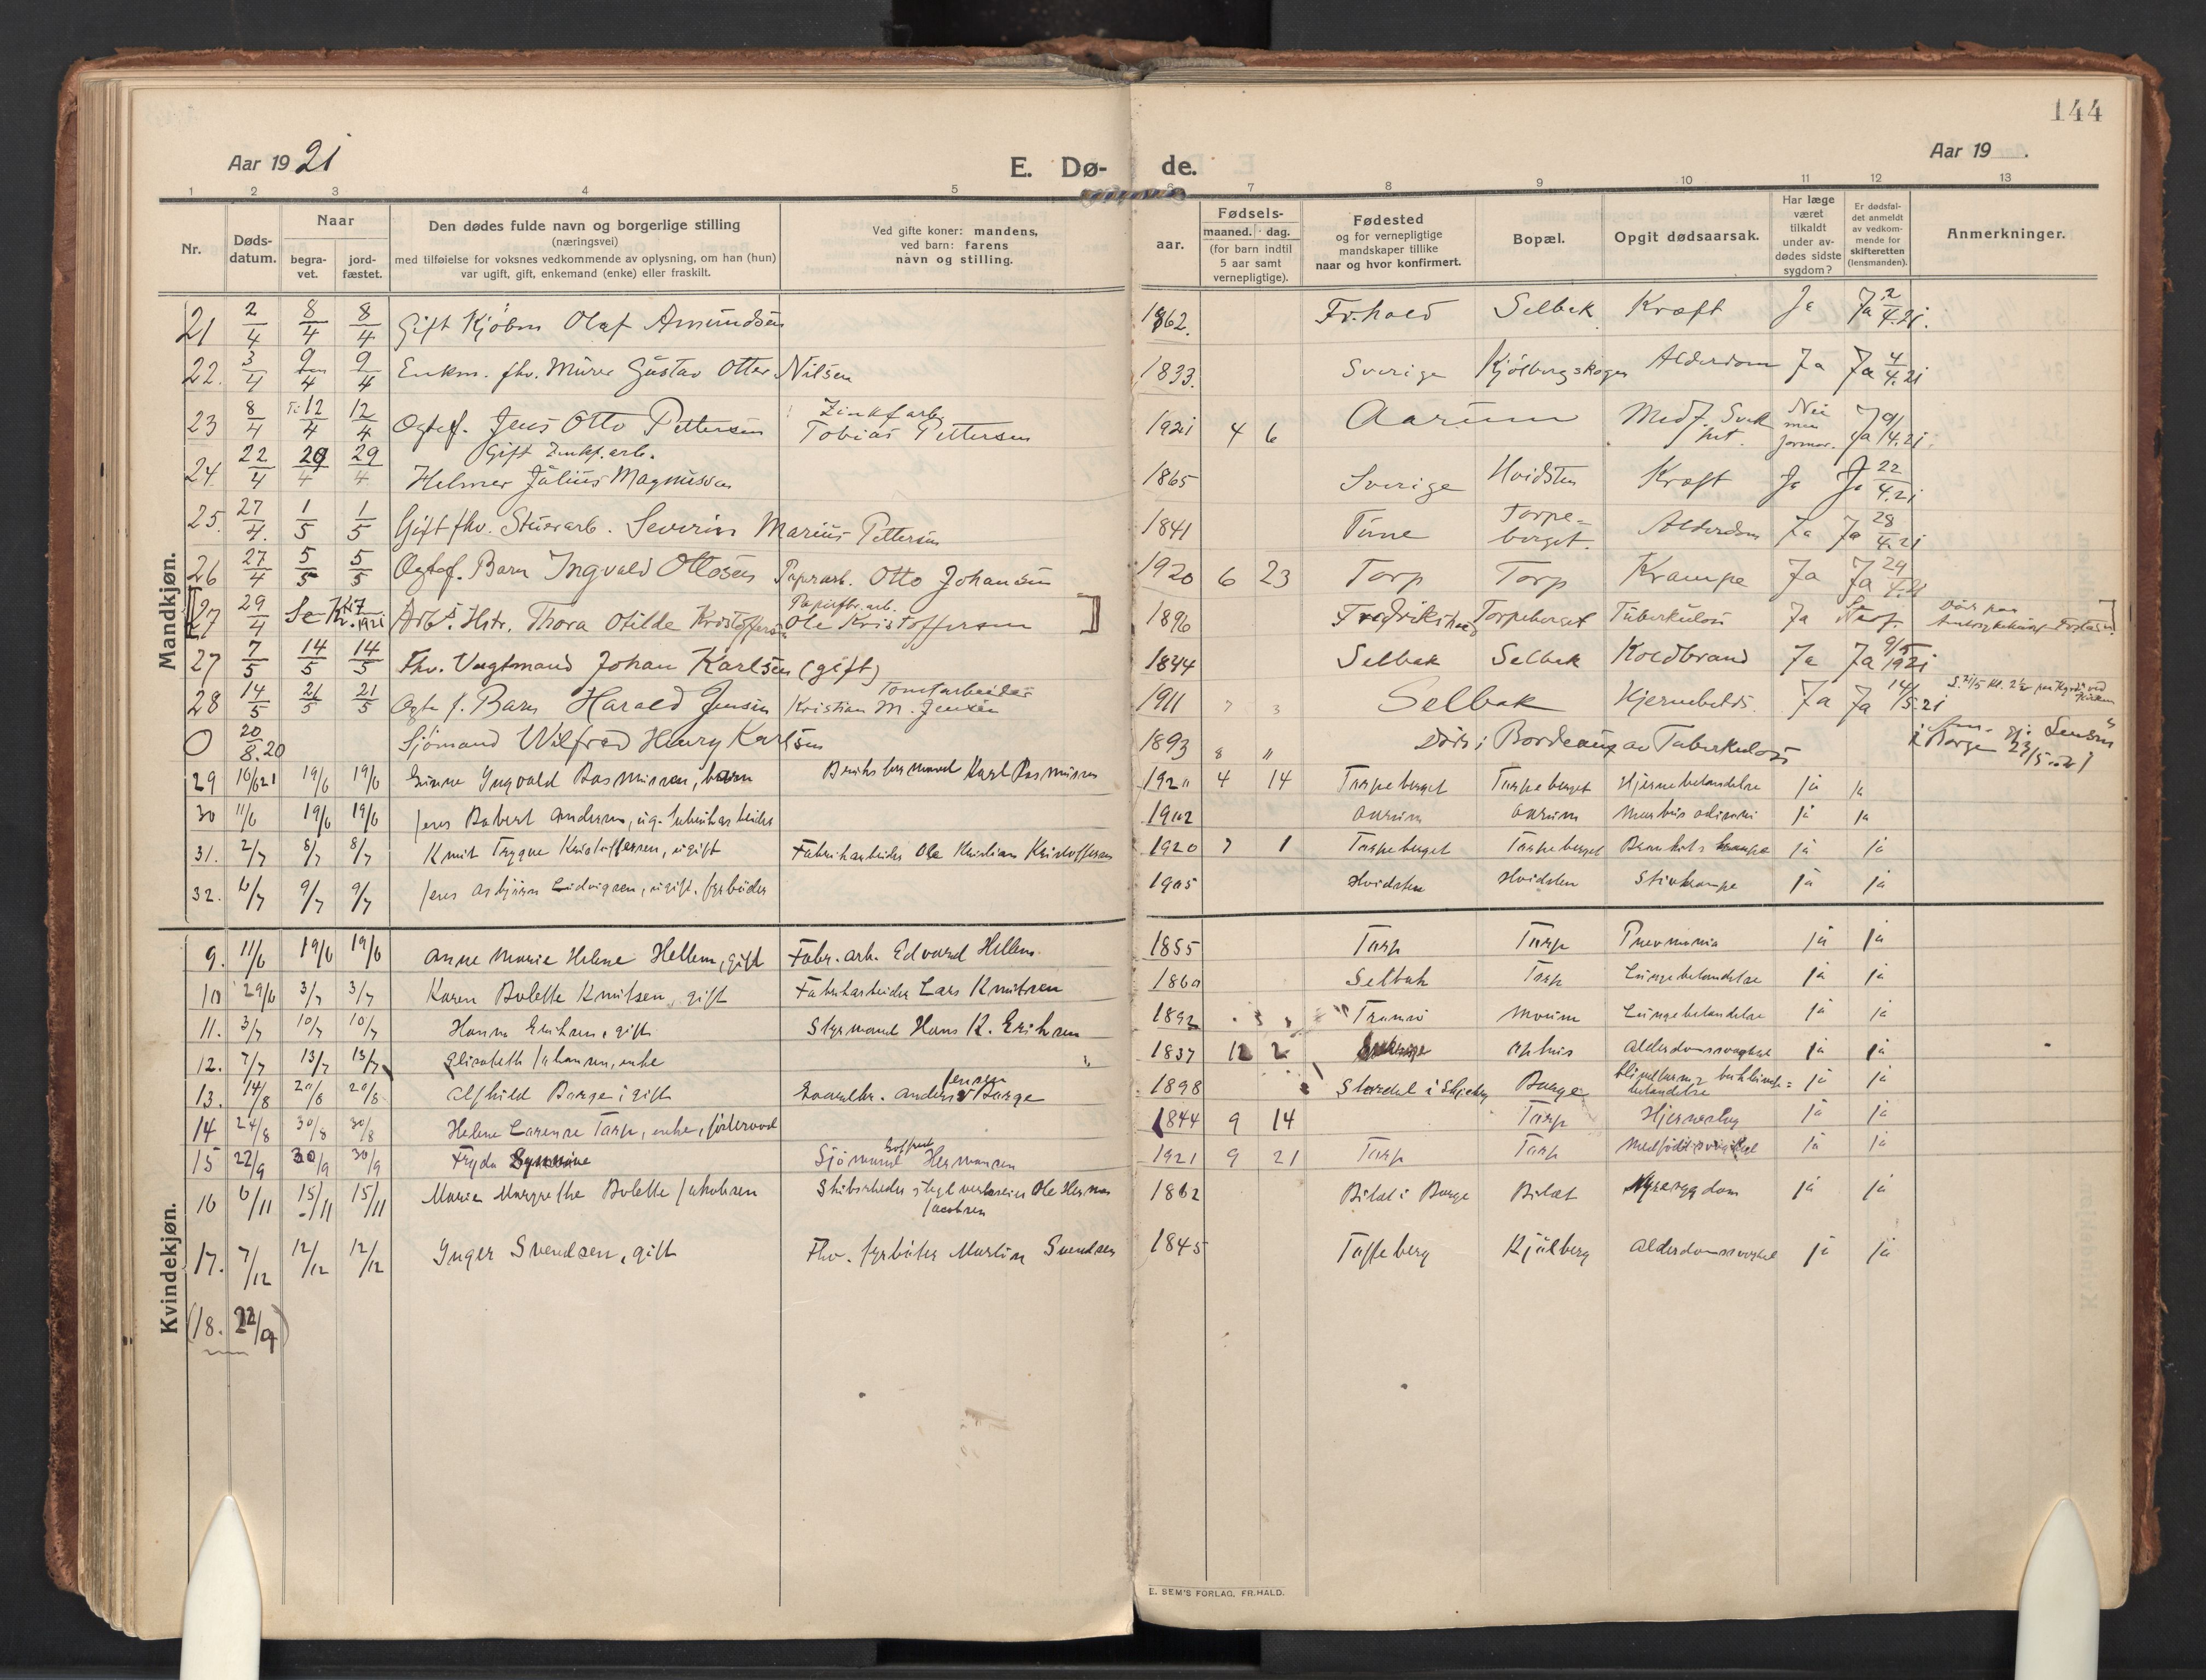 144
Aar 1921
E. Dø- de.
Aar 19 .
1 2 3 4 5 6 7 8 9 10 11 12 13
Nr.
Døds-
datum.
Naar
begra-
vet.
jord-
fæstet.
Den dødes fulde navn og borgerlige stilling
(næringsvei)
med tilføielse for voksnes vedkommende av oplysning, om han (hun)
var ugift, gift, enkemand (enke) eller fraskilt.
Ved gifte koner: mandens,
ved barn: farens
navn og stilling.
Fødsels-
aar.
maaned. dag.
(for barn indtil
5 aar samt
vernepligtige).
Fødested
og for vernepligtige
mandskaper tillike
naar og hvor konfirmert.
Bopæl.
Opgit dødsaarsak.
Har læge
været
tilkaldt
under av-
dødes sidste
sygdom?
Er dødsfal-
det anmeldt
av vedkom-
mende for
skifteretten
(lensmanden).
Anmerkninger.
Mandkjøn.
21 2/4 8/4 8/4 Gift Kjøbm Olaf Amundsen 1862. Fr.hald Selbak Kræft Ja Ja 2/4.21.
22. 3/4 9/4 9/4 Enkm. fhv. Murer Gustav Otter Nilsen 1833. Sverige Kjölbergskogen Alderdom Ja Ja 4/4.21
23 8/4 12/4 12/4 Ogtef. Jens Otto Pettersen Zinkf arb. Tobias Pettersen 1921 4 6 Aarum Medf. Svak Nei Ja 9/4.21.
24. 22/4 29/4 29/4 Gift Zinkf. arb. Helmer Julius Magnussen 1865 Sverige Hvidsten Kræft Ja Ja 22/4.21
25. 27/4. 1/5 1/5 Gift fhv. Stuerarb. Severin Marius Pettersen 1841 Tune Torpe-berget. Alderdom Ja Ja 28/4.21
26 27/4 5/5 5/5 Ogtef. Barn Ingvald Ottosen Papirarb. Otto Johansen 1920 6 23 Torp Torp Krampe Ja Ja 29/4.21
[27 29/4 Se Kv. 1921 Arb. Hstr. Thora Otilde Kristoffersen Papirfbr. arb. Ole Kristoffersen] 1896 Fredrikshald Torpeberget Tuberkulos Ja
27 7/5 14/5 14/5 Fhv. Vagtmand Johan Karlsen (gift) 1844 Selbak Selbak Koldbrand Ja Ja 9/5 1921
28 14/5 21/5 21/5 Ogte f. Barn Harald Jensen Tomtarbeider Kristian M. Jensen 1911 7 3 Selbak Hjernebetds. Ja Ja 14/5.21
O 20/8.20 Sjömand Wilfred Henry Karlsen 1893 8 " Döds i Bordeaux av Tuberkulos i Borge 23/5 21
29 10/6 21 19/6 19/6 Einar Yngvald Rasmussen, barn Karl Rasmussen 192" 4 14 Torpeberget Torpeberget Hjernebetændelse ja ja
30 11/6 19/6 19/6 Jens Robert Andersen, ug. fabrikarbeider 1902 Aarum Aarum Morbus ja ja
31. 2/7 8/7 8/7 Knut Trygve Kristoffersen, ugift Fabrikarbeider Ole Kristian Kristoffersen 1920 7 1 Torpeberget Torpeberget ja ja
32. 6/7 9/7 9/7 Jens Asbjörn Ludvigsen, ugift. fyrböder 1905 Hvidsten Hvidsten Stivkrampe ja ja
Kvindekjøn.
9. 11/6 19/6 19/6 Anne Marie Helene Hellem, gift Fabr. arb. Edvard Hellem. 1855 Torp Torp Pneumonia ja ja
10 29/6 3/7 3/7 Karen Bolette Knutsen, gift Fabrikarbeider Lars Knutsen 1860 Selbak Torp Lungebetændelse ja ja
11. 3/7 10/7 10/7 Hanna Eriksen, gift Styrmand Hans K. Eriksen 1892 Tromsö Moum Lungebetændelse ja ja
12. 7/7 13/7 13/7 Elisabeth Johansen, enke " 1837 12 2 Aphus Alderdomssvaghet ja ja
13. 14/8 20/8 20/8 Alfhild Borge, gift Gaardbr. Anders Jensen Borge 1898 Stordal i Skjeberg Borge Blindtarm- bukhinde= betændelse ja ja
14 24/8 30/8 30/8 Helene Larense Torp, enke, föderaad 1844 9 14 Torp Hjerneslag ja ja
15 22/9 30/9 30/9 Fryda Sjömand Hermansen 1921 9 21 Torp Torp Medfödt svaghet ja ja
16 6/11 15/11 15/11 Marie Margrethe Bolette Jakobsen Skibsreder, teglverkseier Ole Herman Jacobsen 1862 Bilat i Borge Bilat Nyresygdom ja ja
17. 7/12 12/12 12/12 Inger Svendsen, gift Fhv. fyrböter Martin Svendsen 1845 Toffeberg Kjölberg Alderdomssvaghet ja ja
(18. 22/9)
E. SEM'S FORLAG, FR.HALD.